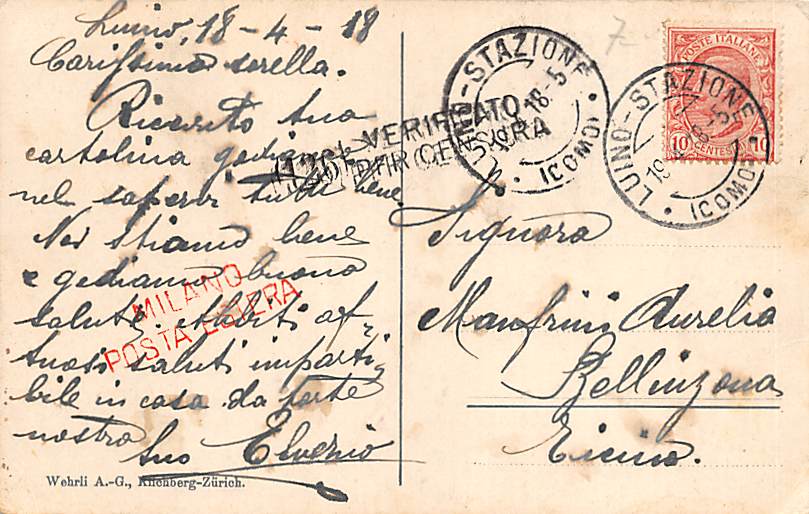 Luino, 18-4-18
Carissima sorella.
Ricevuto tua
cartolina godiamo
nel saperi tutti bene
Noi stiamo bene
e godiamo buona
salute.
tuosi saluti imparti
bile in casa da parte
nostra
tuo Elvezio
Wehrli A.-G., Kilchberg-Zürich.
MILANO
POSTA ESTERA
VERIFICATO
PER CENSURA
LUINO-STAZIONE
18-5
(COMO)
7-
POSTE ITALIANE
10 CENTESIMI 10
LUINO-STAZIONE
(COMO)
Signora
Manfrini Aurelia
Bellinzona
Ticino.